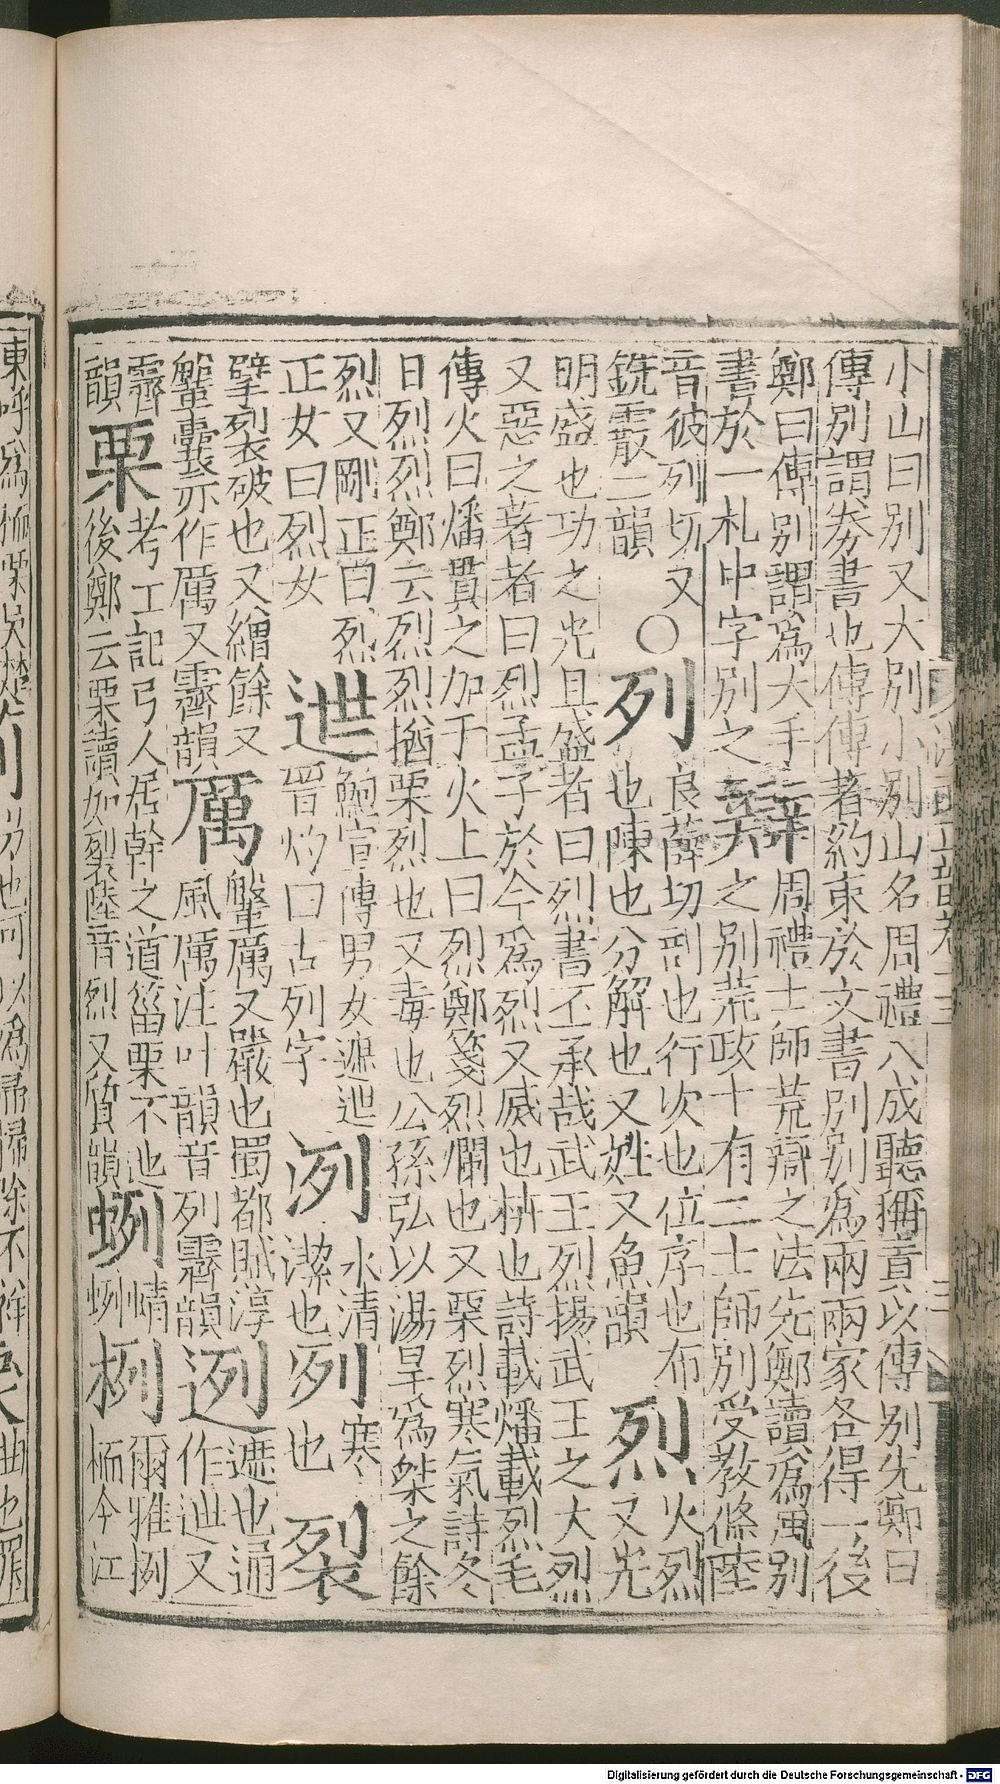 小山曰別又大別小別山名周禮八成聽稱責以傳別先鄭曰
傳別謂券書也傳傳著約束於文書別別爲兩兩家各得一後
鄭曰傳別謂爲大手書於一札中字別之
辯 周禮士師荒辯之法先鄭讀爲風別之別荒政十有二士師別受教條陸音彼列切又銑霰二韻
〇列 良薛切剖也行次也位序也布也陳也分解也又姓又魚韻
烈 火烈又光明盛也功之光且盛者曰烈書丕承哉武王烈揚武王之大烈
又惡之著者曰烈孟子於今爲烈又威也詩載燔載烈毛
傳火曰燔貫之加于火上曰烈鄭箋烈爛也又栗烈寒氣詩冬
日烈烈鄭云烈烈猶栗烈也又毒也公孫弘以湯旱爲桀之餘
烈又剛正曰烈正女曰烈女
迣 鮑宣傳男女遮迣晉灼曰古列字
洌 水清潔也
冽 寒也
裂 擘裂破也又繒餘又鞶囊亦作厲又霽韻
厲 鞶厲又嚴也蜀都賦淳風厲注叶韻音列霽韻
迾 遮也通作迣又霽韻
栗 考工記弓人居幹之道菑栗不迆後鄭云栗讀如裂陸音烈又質韻
蛚 蜻蛚
栵 爾雅栵栭今江
東呼爲栭栗吳楚
Digitalisierung gefördert durch die Deutsche Forschungsgemeinschaft - DFG